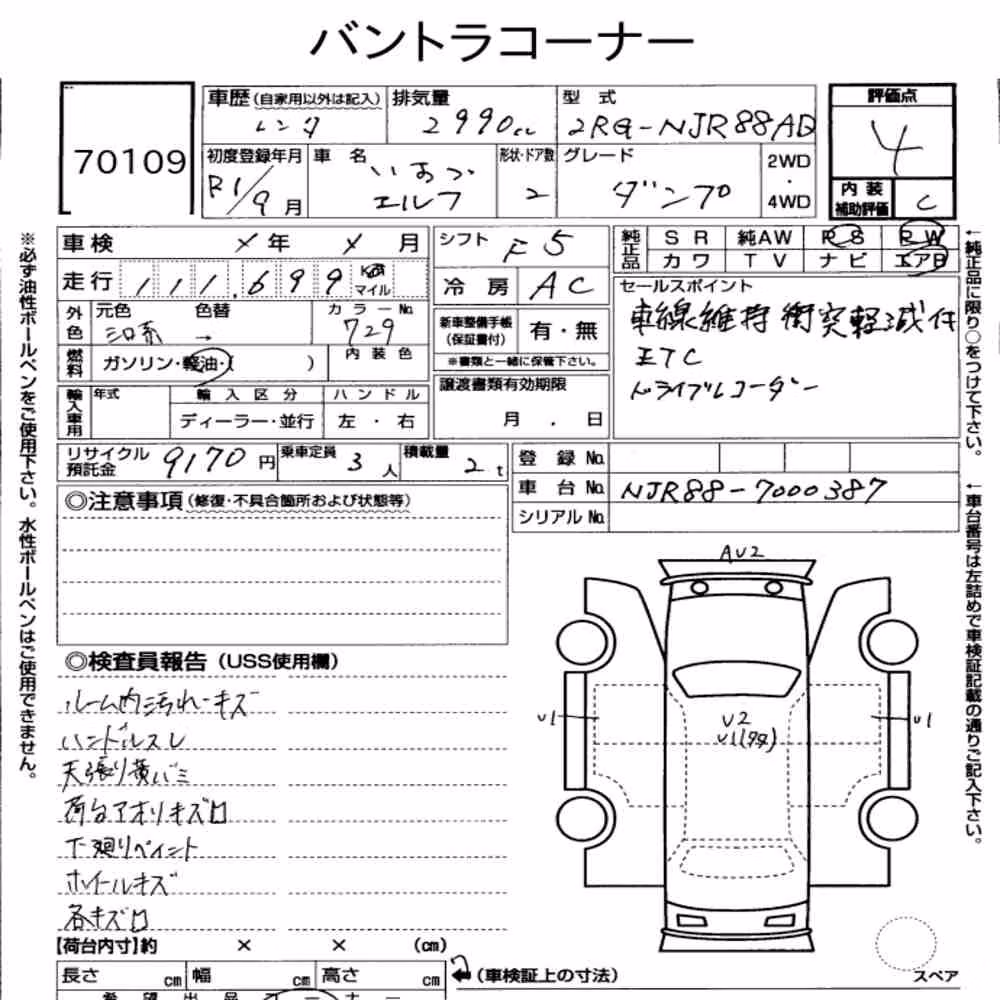 バントラコーナー
70109
車歴(自家用以外は記入) 排気量 型 式 評価点
レンタ 2990cc 2RG-NJR88AD 4
初度登録年月 車 名 形状・ドア数 グレード 2WD
R1/9月 いすゞ エルフ 2 ダンプ ・
4WD
内 装
補助評価 C
車検 ×年 ×月 シフト F5 純正品 SR 純AW PS PW
カワ TV ナビ エアB
走行 111,699 Km マイル 冷房 AC
セールスポイント
外色 元色 色替 カラーNo. 729
シロ系 →
新車整備手帳
(保証書付) 有・無
※書類と一緒に保管下さい。
車線維持 衝突軽減付
ETC
ドライブレコーダー
燃料 ガソリン・軽油・( ) 内装色
譲渡書類有効期限
月 . 日
輸入車用 年式 輸入区分 ハンドル
ディーラー・並行 左・右
リサイクル
預託金 9170円 乗車定員 3人 積載量 2t
登録No.
車台No. NJR88-7000387
シリアルNo.
◎注意事項(修復・不具合箇所および状態等)
◎検査員報告(USS使用欄)
ルーム内汚れ・キズ
ハンドルスレ
天張り黄バミ
荷台アオリキズロ
下廻りペイント
ホイールキズ
各キズロ
AU2
U1
U2
U1(タタ)
U1
スペア
【荷台内寸】約 × × (cm)
長さ cm 幅 cm 高さ cm ←(車検証上の寸法)
※必ず油性ボールペンをご使用下さい。水性ボールペンはご使用できません。
←純正品に限り○をつけて下さい。
←車台番号は左詰めで車検証記載の通りご記入下さい。